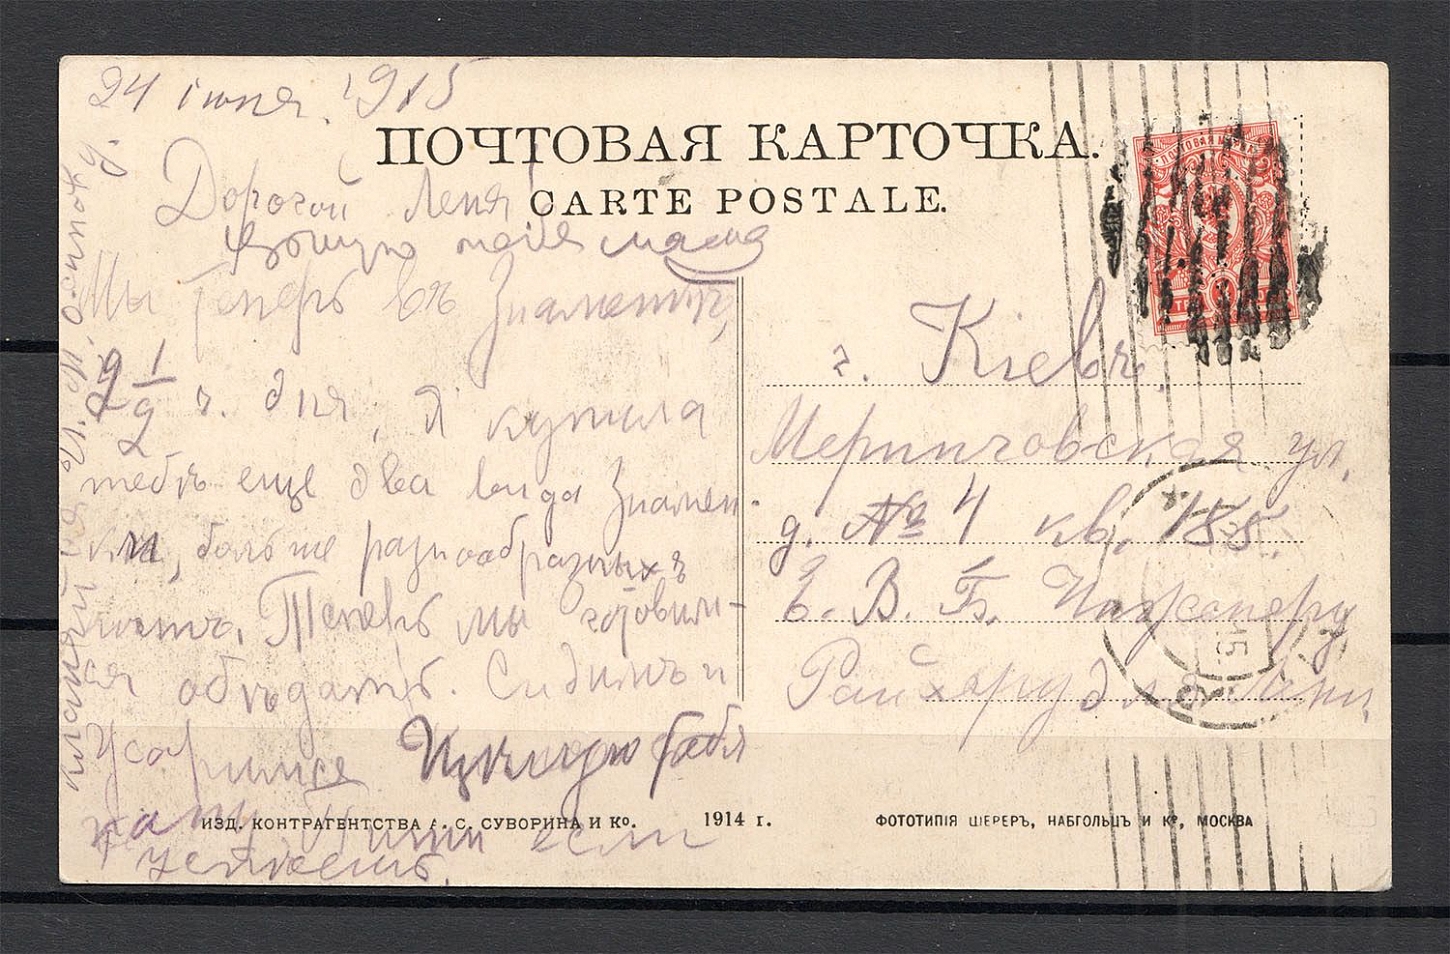 24 іюня 1915
г.
ПОЧТОВАЯ КАРТОЧКА.
CARTE POSTALE.
Дорогой Леня,
цѣлую тебя мама
Мы теперь въ Знаменкѣ,
2 1/2 ч. дня, Я купила
тебѣ еще два вида Знамен-
ки, больше разнообразныхъ
нѣтъ. Теперь мы готовим-
ся обѣдать. Сидимъ и
Цѣлую тебя
папу Пиши если
успѣешь.
г. Кіевъ.
Меринговская ул.
д. № 4 кв. 155.
Е. В. Б. Инженеру
Райхард для Лени
ИЗД. КОНТРАГЕНТСТВА А. С. СУВОРИНА И Кº.
1914 г.
ФОТОТИПІЯ ШЕРЕРЪ, НАБГОЛЬЦЪ И Кº, МОСКВА